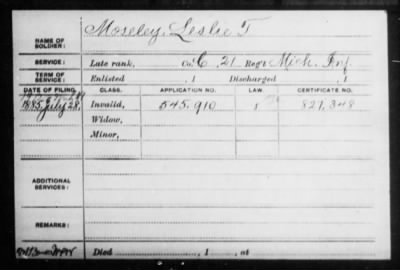 NAME OF SOLDIER: Moseley, Leslie T
SERVICE: Late rank, Co. C, 21 Reg't Mich. Inf.
TERM OF SERVICE: Enlisted , 1 Discharged , 1
DATE OF FILING. CLASS. APPLICATION NO. LAW. CERTIFICATE NO.
1885 July 28, Invalid, 545.910 827,348
Widow,
Minor,
ADDITIONAL SERVICES:
REMARKS:
Died , 1 , at